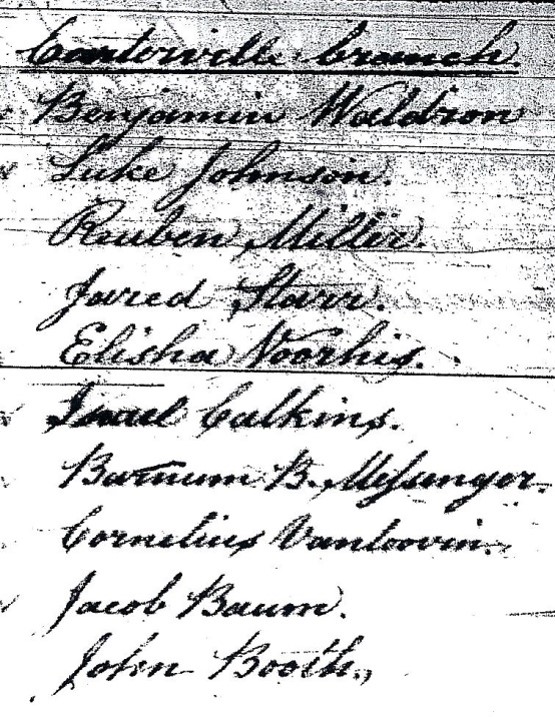 Centerville branch.
Benjamin Waldron
Luke Johnson.
Reuben Miller.
Jared Starr.
Elisha Voorhis.
Israel Calkins.
Barnum B. Messenger.
Cornelius Vanleovin.
Jacob Baum.
John Booth.